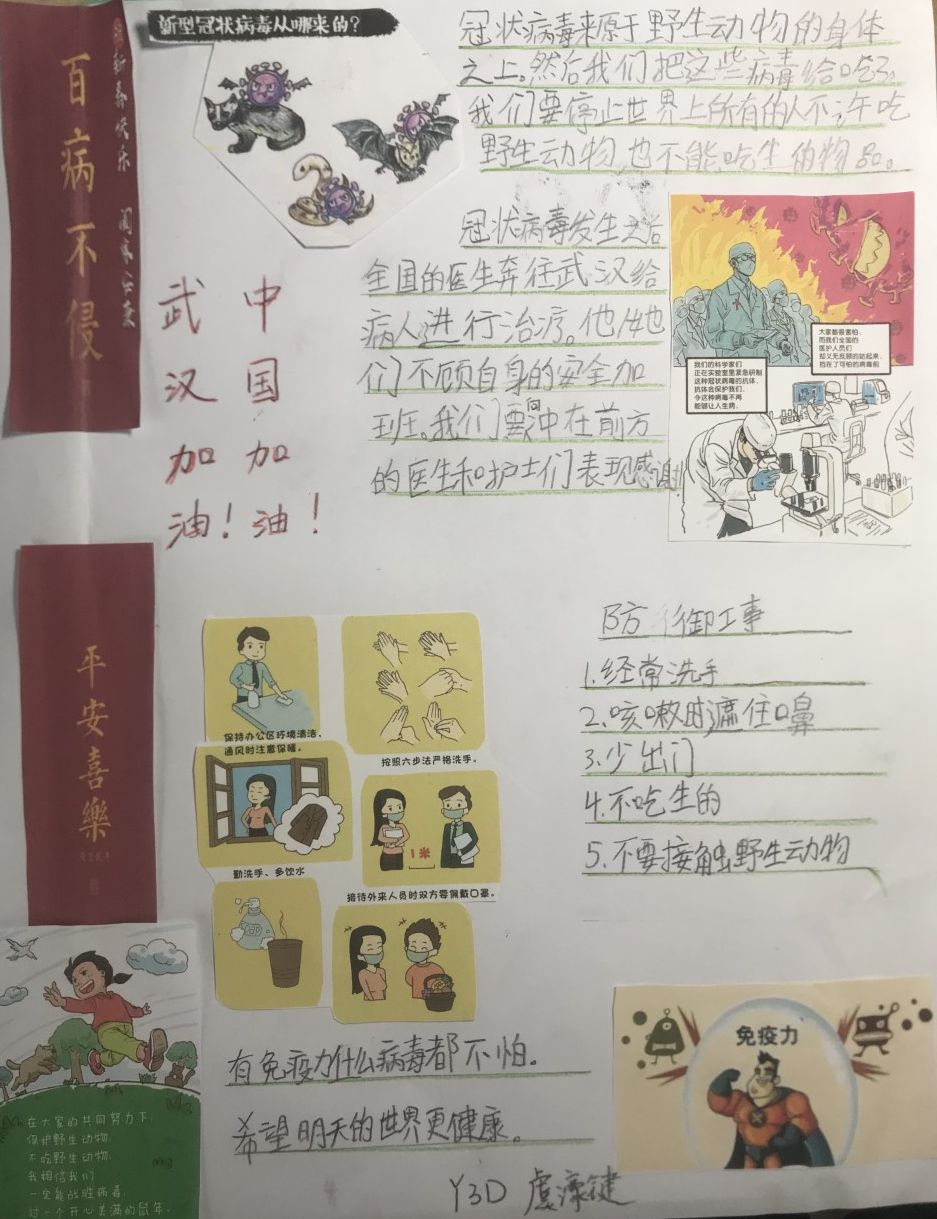 新型冠状病毒从哪来的？
冠状病毒来原于野生动物的身体
之上。然后我们把这些病毒给吃了。
我们要停止世界上所有的人不许吃
野生动物也不能吃生的物品。
百病不侵
新春快乐 阖家安康
冠状病毒发生之后
全国的医生奔往武汉给
病人进行治疗。他/她
们不顾自身的安全加
班。我们要向冲在前方
的医生和护士们表现感谢!
武汉加油！
中国加油！
大家都很害怕，
而我们全国的
医护人员们
却义无反顾的站起来，
挡在了可怕的病毒前
我们的科学家们
正在实验室里紧急研制
这种冠状病毒的抗体，
抗体会保护我们，
令这种病毒不再
能够让人生病。
平安喜樂
保持办公区环境清洁，
通风时注意保暖。
按照六步法严格洗手。
1米
勤洗手、多饮水
接待外来人员时双方要佩戴口罩。
防御工事
1.经常洗手
2.咳嗽时遮住口鼻
3.少出门
4.不吃生的
5.不要接触野生动物
免疫力
有免疫力什么病毒都不怕。
希望明天的世界更健康。
在大家的共同努力下，
保护野生动物，
不吃野生动物，
我相信我们
一定能战胜病毒，
过一个开心美满的鼠年。
Y3D 虞濠键